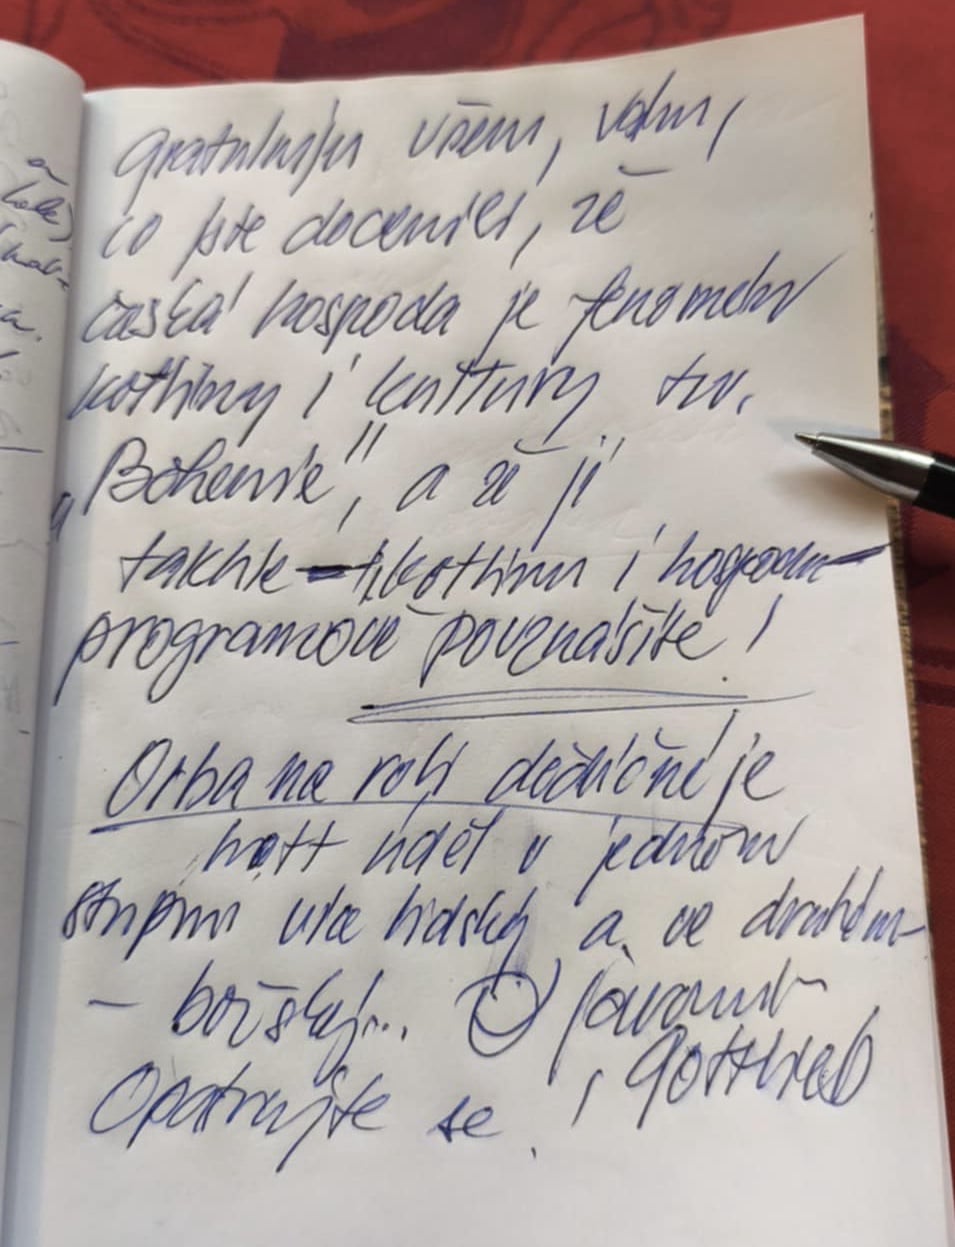 Gratuluju všem, vám,
co jste docenili, že
česká hospoda je fenomém
kotliny i kultury tzv.
„Bohemie", a že ji
takhle - i kotlinu i hospodu -
programově povznášíte!
Orba na roli dědičné je
holt úděl v jednom
stupni více lidský a ve druhém
- božský... Jaromír
Opatrujte se! Gottlieb